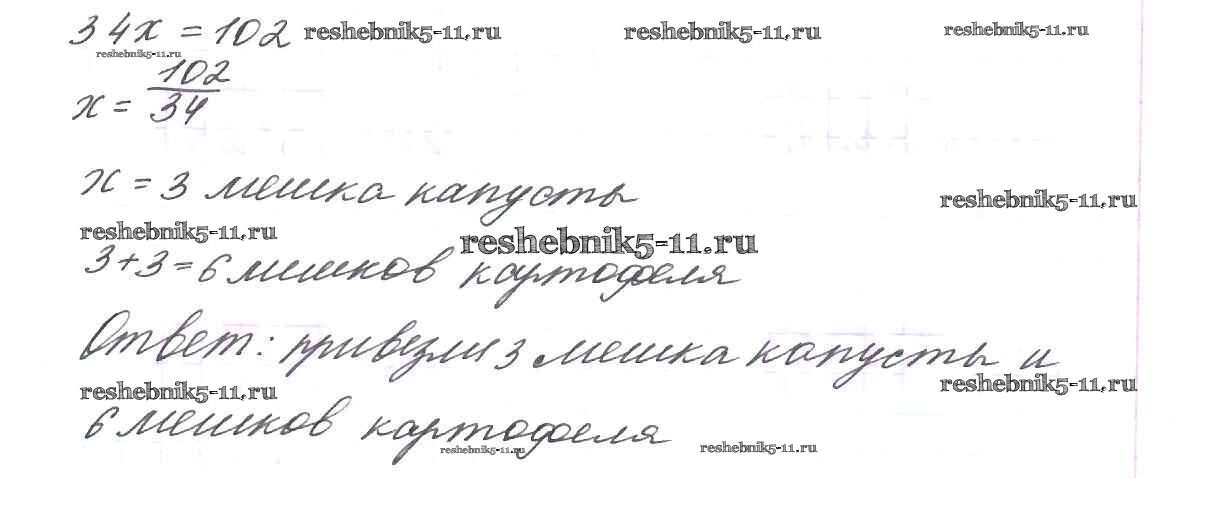 34x = 102 reshebnik5-11.ru reshebnik5-11.ru reshebnik5-11.ru
reshebnik5-11.ru
x = 102/34
x = 3 мешка капусты
reshebnik5-11.ru
reshebnik5-11.ru reshebnik5-11.ru
3+3=6 мешков картофеля
Ответ: привезли 3 мешка капусты и
reshebnik5-11.ru reshebnik5-11.ru
6 мешков картофеля
reshebnik5-11.ru reshebnik5-11.ru